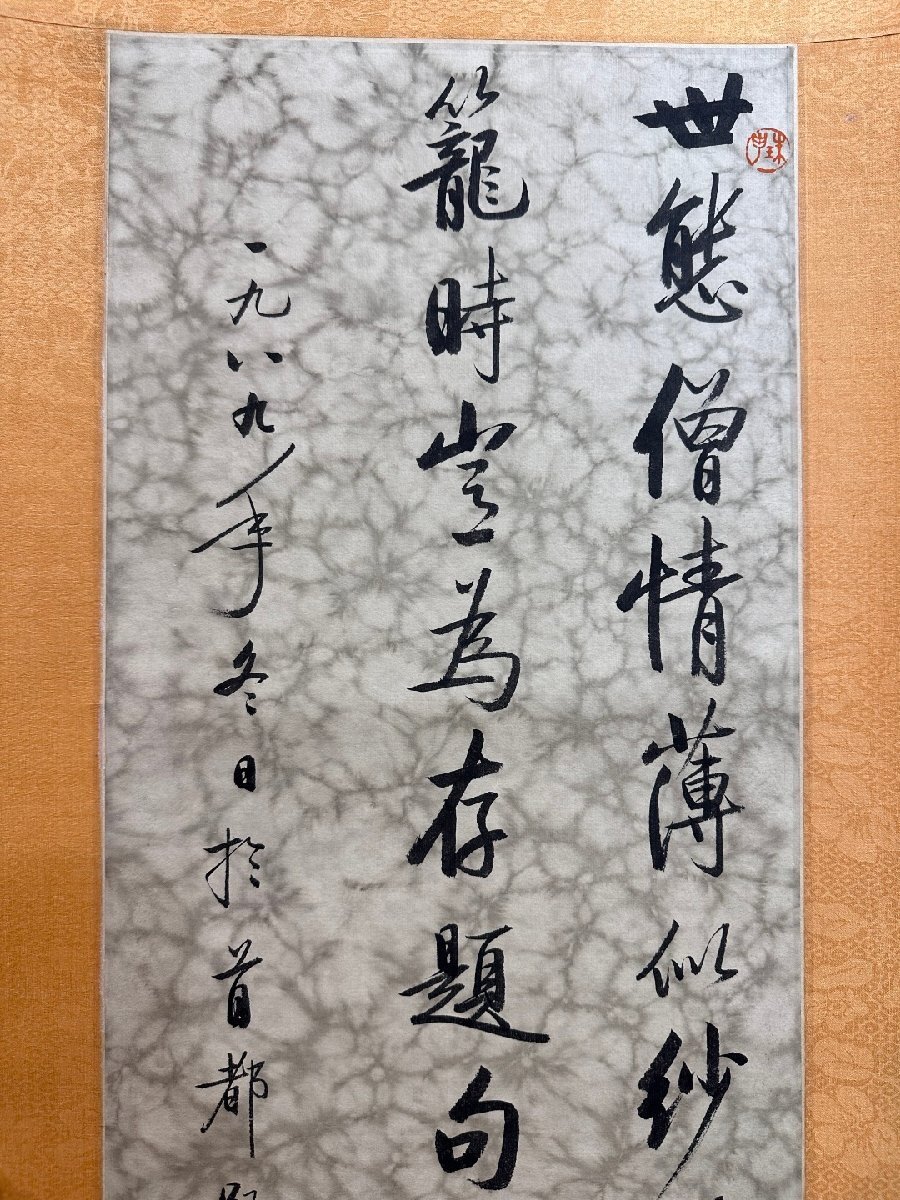 世態僧情薄似紗
籠時豈為存題句
一九八九年冬日於首都